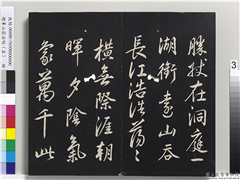 勝狀在洞庭一
湖銜遠山吞
長江浩浩蕩〻
橫無際涯朝
暉夕陰氣
象萬千此
3